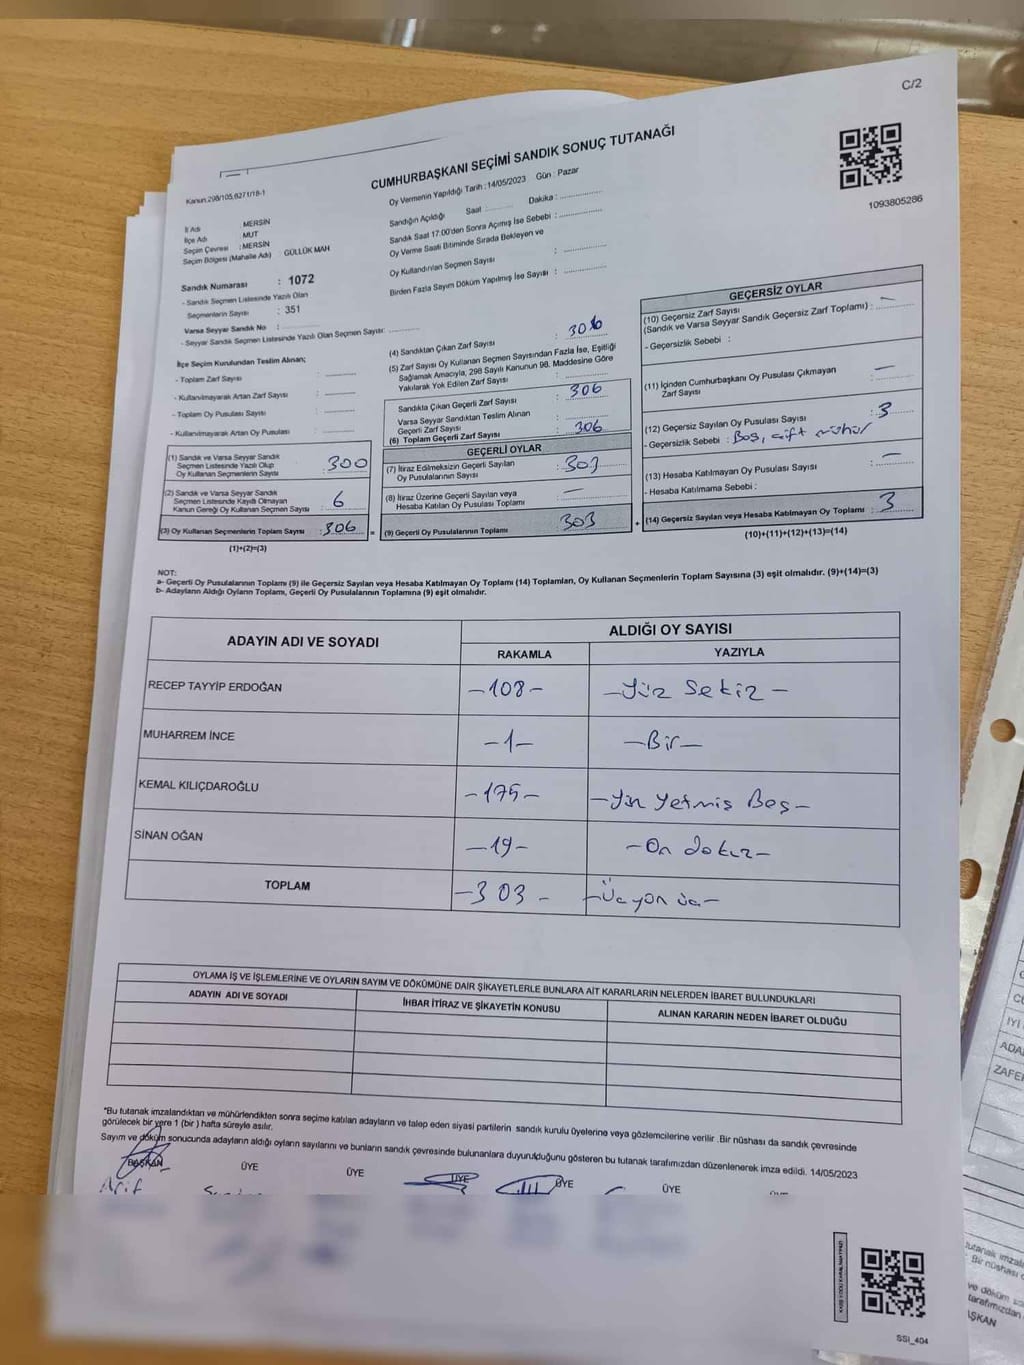 C/2
CUMHURBAŞKANI SEÇİMİ SANDIK SONUÇ TUTANAĞI
Kanun.298/105,6271/18-1
Oy Vermenin Yapıldığı Tarih : 14/05/2023 Gün : Pazar
1093805286
İl Adı : MERSİN
İlçe Adı MUT
Seçim Çevresi : MERSİN
Seçim Bölgesi (Mahalle Adı) GÜLLÜK MAH
Sandığın Açıldığı Saat : Dakika :
Sandık Saat 17:00'den Sonra Açımış İse Sebebi :
Oy Verme Saati Bitiminde Sırada Bekleyen ve
Oy Kullandırılan Seçmen Sayısı :
Birden Fazla Sayım Döküm Yapılmış İse Sayısı :
Sandık Numarası : 1072
- Sandık Seçmen Listesinde Yazılı Olan
Seçmenlerin Sayısı : 351
Varsa Seyyar Sandık No :
- Seyyar Sandık Seçmen Listesinde Yazılı Olan Seçmen Sayısı:
İlçe Seçim Kurulundan Teslim Alınan;
- Toplam Zarf Sayısı :
- Kullanılmayarak Artan Zarf Sayısı :
- Toplam Oy Pusulası Sayısı :
- Kullanılmayarak Artan Oy Pusulası :
(1) Sandık ve Varsa Seyyar Sandık
Seçmen Listesinde Yazılı Olup
Oy Kullanan Seçmenlerin Sayısı : 300
(2) Sandık ve Varsa Seyyar Sandık
Seçmen Listesinde Kayıtlı Olmayan
Kanun Gereği Oy Kullanan Seçmen Sayısı : 6
(3) Oy Kullanan Seçmenlerin Toplam Sayısı : 306 =
(1)+(2)=(3)
(4) Sandıktan Çıkan Zarf Sayısı : 306
(5) Zarf Sayısı Oy Kullanan Seçmen Sayısından Fazla İse, Eşitliği
Sağlamak Amacıyla, 298 Sayılı Kanunun 98. Maddesine Göre
Yakılarak Yok Edilen Zarf Sayısı :
Sandıkta Çıkan Geçerli Zarf Sayısı : 306
Varsa Seyyar Sandıktan Teslim Alınan
Geçerli Zarf Sayısı :
(6) Toplam Geçerli Zarf Sayısı : 306
GEÇERLİ OYLAR
(7) İtiraz Edilmeksizin Geçerli Sayılan
Oy Pusulalarının Sayısı : 303
(8) İtiraz Üzerine Geçerli Sayılan veya
Hesaba Katılan Oy Pusulası Toplamı : —
(9) Geçerli Oy Pusulalarının Toplamı : 303 +
GEÇERSİZ OYLAR
(10) Geçersiz Zarf Sayısı
(Sandık ve Varsa Seyyar Sandık Geçersiz Zarf Toplamı) : —
- Geçersizlik Sebebi :
(11) İçinden Cumhurbaşkanı Oy Pusulası Çıkmayan
Zarf Sayısı : —
(12) Geçersiz Sayılan Oy Pusulası Sayısı : 3
- Geçersizlik Sebebi : Boş, çift mühür
(13) Hesaba Katılmayan Oy Pusulası Sayısı : —
- Hesaba Katılmama Sebebi :
(14) Geçersiz Sayılan veya Hesaba Katılmayan Oy Toplamı : 3
(10)+(11)+(12)+(13)=(14)
NOT:
a- Geçerli Oy Pusulalarının Toplamı (9) ile Geçersiz Sayılan veya Hesaba Katılmayan Oy Toplamı (14) Toplamları, Oy Kullanan Seçmenlerin Toplam Sayısına (3) eşit olmalıdır. (9)+(14)=(3)
b- Adayların Aldığı Oyların Toplamı, Geçerli Oy Pusulalarının Toplamına (9) eşit olmalıdır.
ADAYIN ADI VE SOYADI ALDIĞI OY SAYISI
RAKAMLA YAZIYLA
RECEP TAYYİP ERDOĞAN -108- -Yüz Sekiz-
MUHARREM İNCE -1- -Bir-
KEMAL KILIÇDAROĞLU -175- -Yüz Yetmiş Beş-
SİNAN OĞAN -19- -On dokuz-
TOPLAM -303- -Üç yön üç-
OYLAMA İŞ VE İŞLEMLERİNE VE OYLARIN SAYIM VE DÖKÜMÜNE DAİR ŞİKAYETLERLE BUNLARA AİT KARARLARIN NELERDEN İBARET BULUNDUKLARI
ADAYIN ADI VE SOYADI İHBAR İTİRAZ VE ŞİKAYETİN KONUSU ALINAN KARARIN NEDEN İBARET OLDUĞU
*Bu tutanak imzalandıktan ve mühürlendikten sonra seçime katılan adayların ve talep eden siyasi partilerin sandık kurulu üyelerine veya gözlemcilerine verilir .Bir nüshası da sandık çevresinde
görülecek bir yere 1 (bir ) hafta süreyle asılır.
Sayım ve döküm sonucunda adayların aldığı oyların sayılarını ve bunların sandık çevresinde bulunanlara duyurulduğunu gösteren bu tutanak tarafımızdan düzenlenerek imza edildi. 14/05/2023
BAŞKAN ÜYE ÜYE ÜYE ÜYE ÜYE
Arif
SSI_404
İYİ
ADA
ZAFE
tutanak imza
Bir nüshası
ve döküm
tarafımızdan
AŞKAN